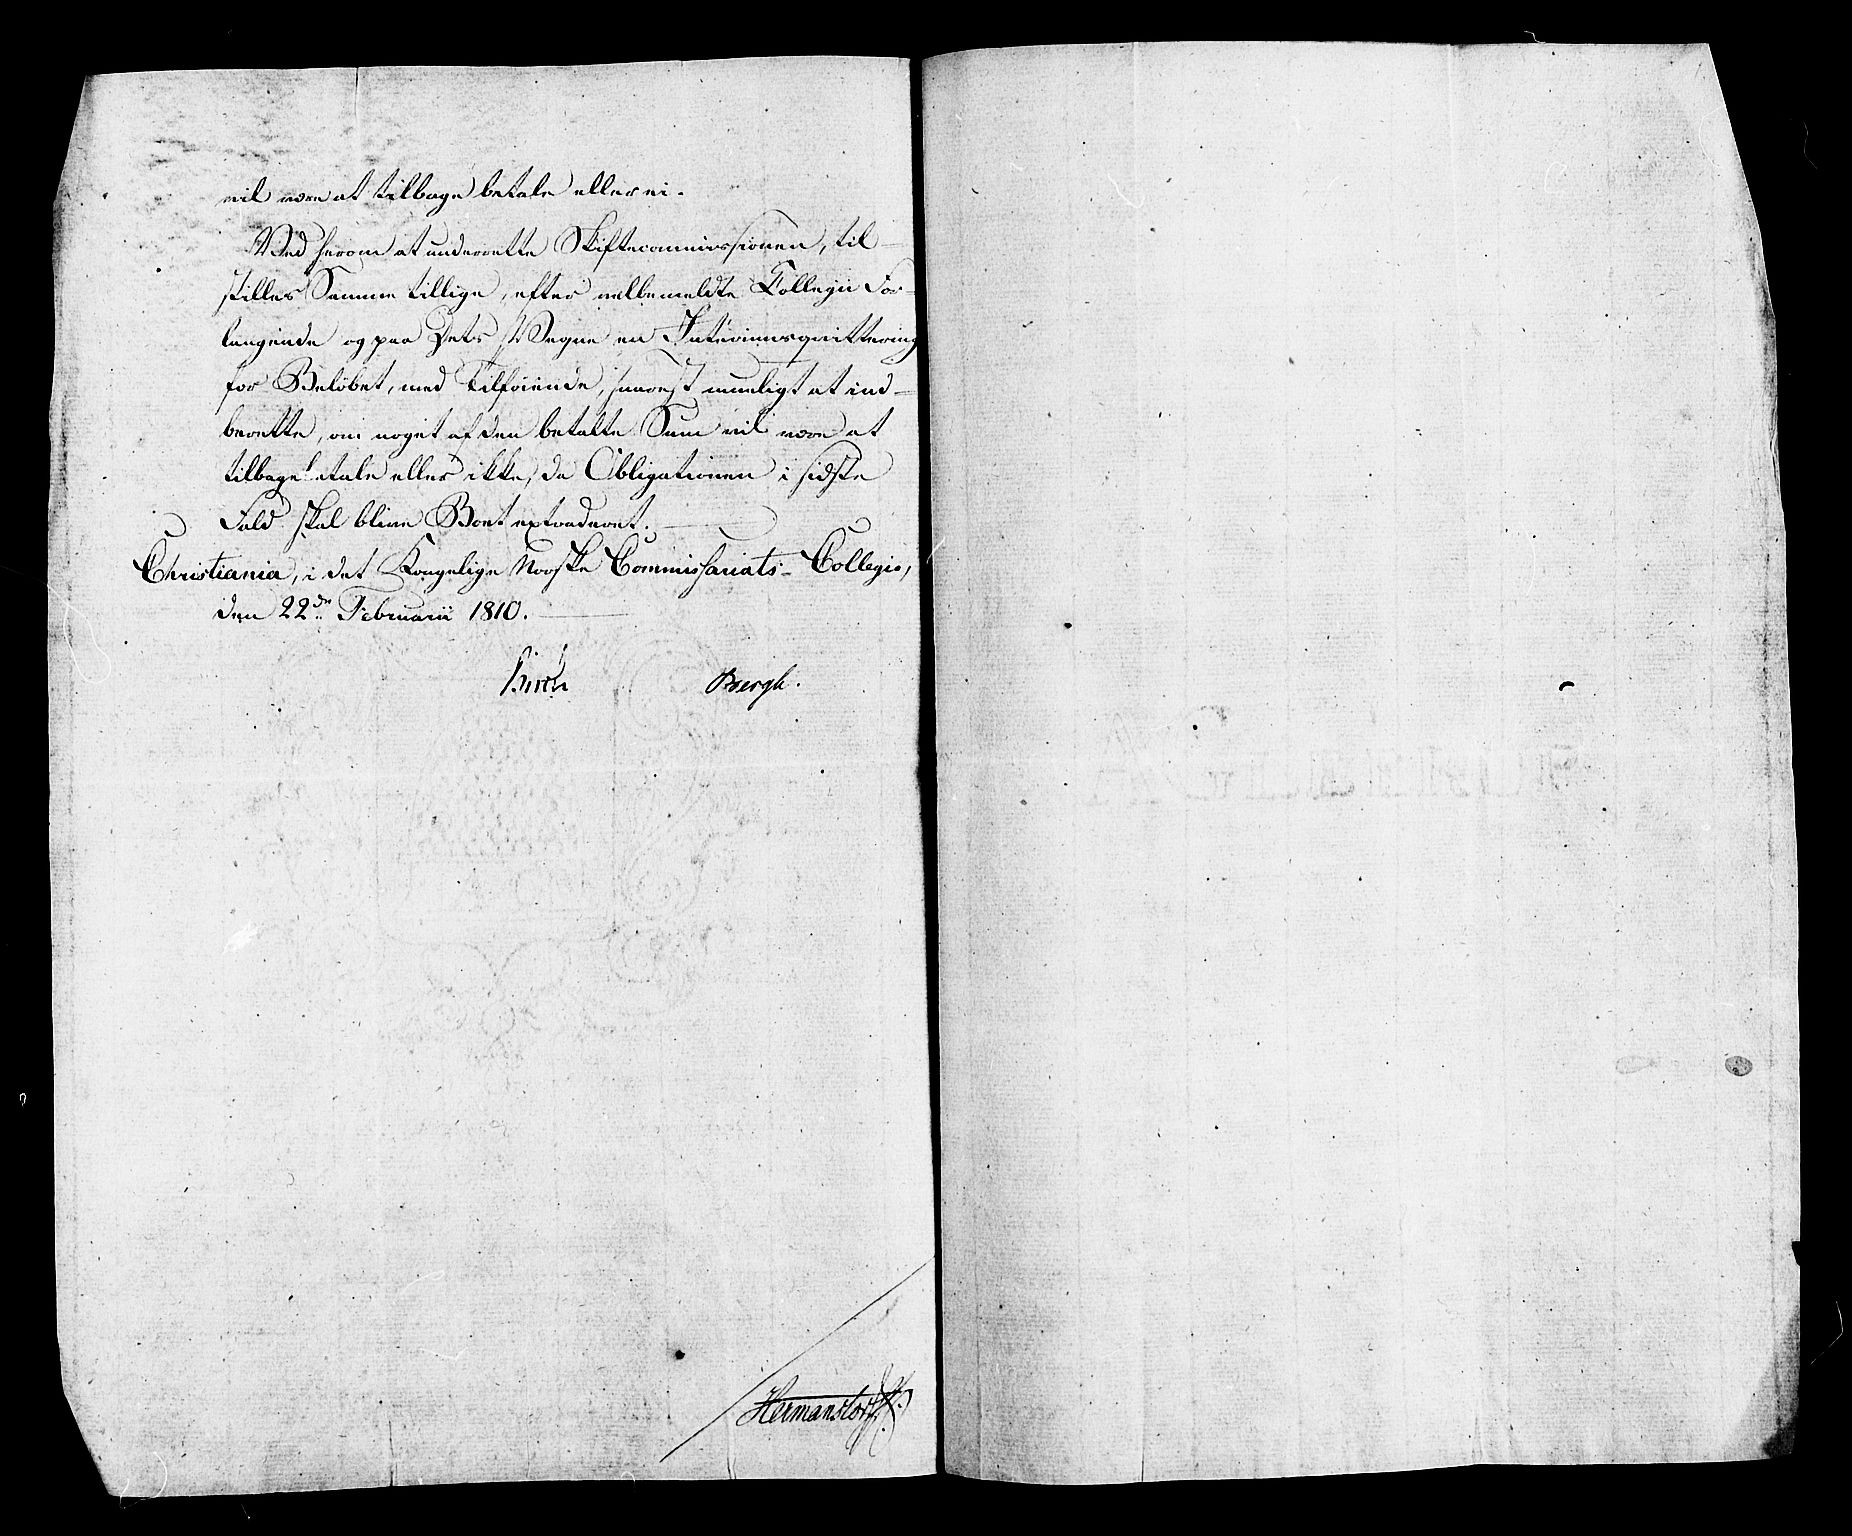 vil være at tilbage betale eller ei.
Ved herom at underrette Skiftecommissionen, til-
stilles Samme tillige, efter velbemeldte Collegii For-
langende og paa Dets Vegne en Interimsqvittering
for Beløbet, med Tilføiende, snarest mueligt at ind-
berette, om noget af den betalte Sum vil være at
tilbagebetale eller ikke, da Obligationen i sidste
Fald skal blive Boet extraderet.
Christiania, i det Kongelige Norske Commissariats-Collegio,
den 22de Februarii 1810.
Birch Bergh.
Hermanstorff.